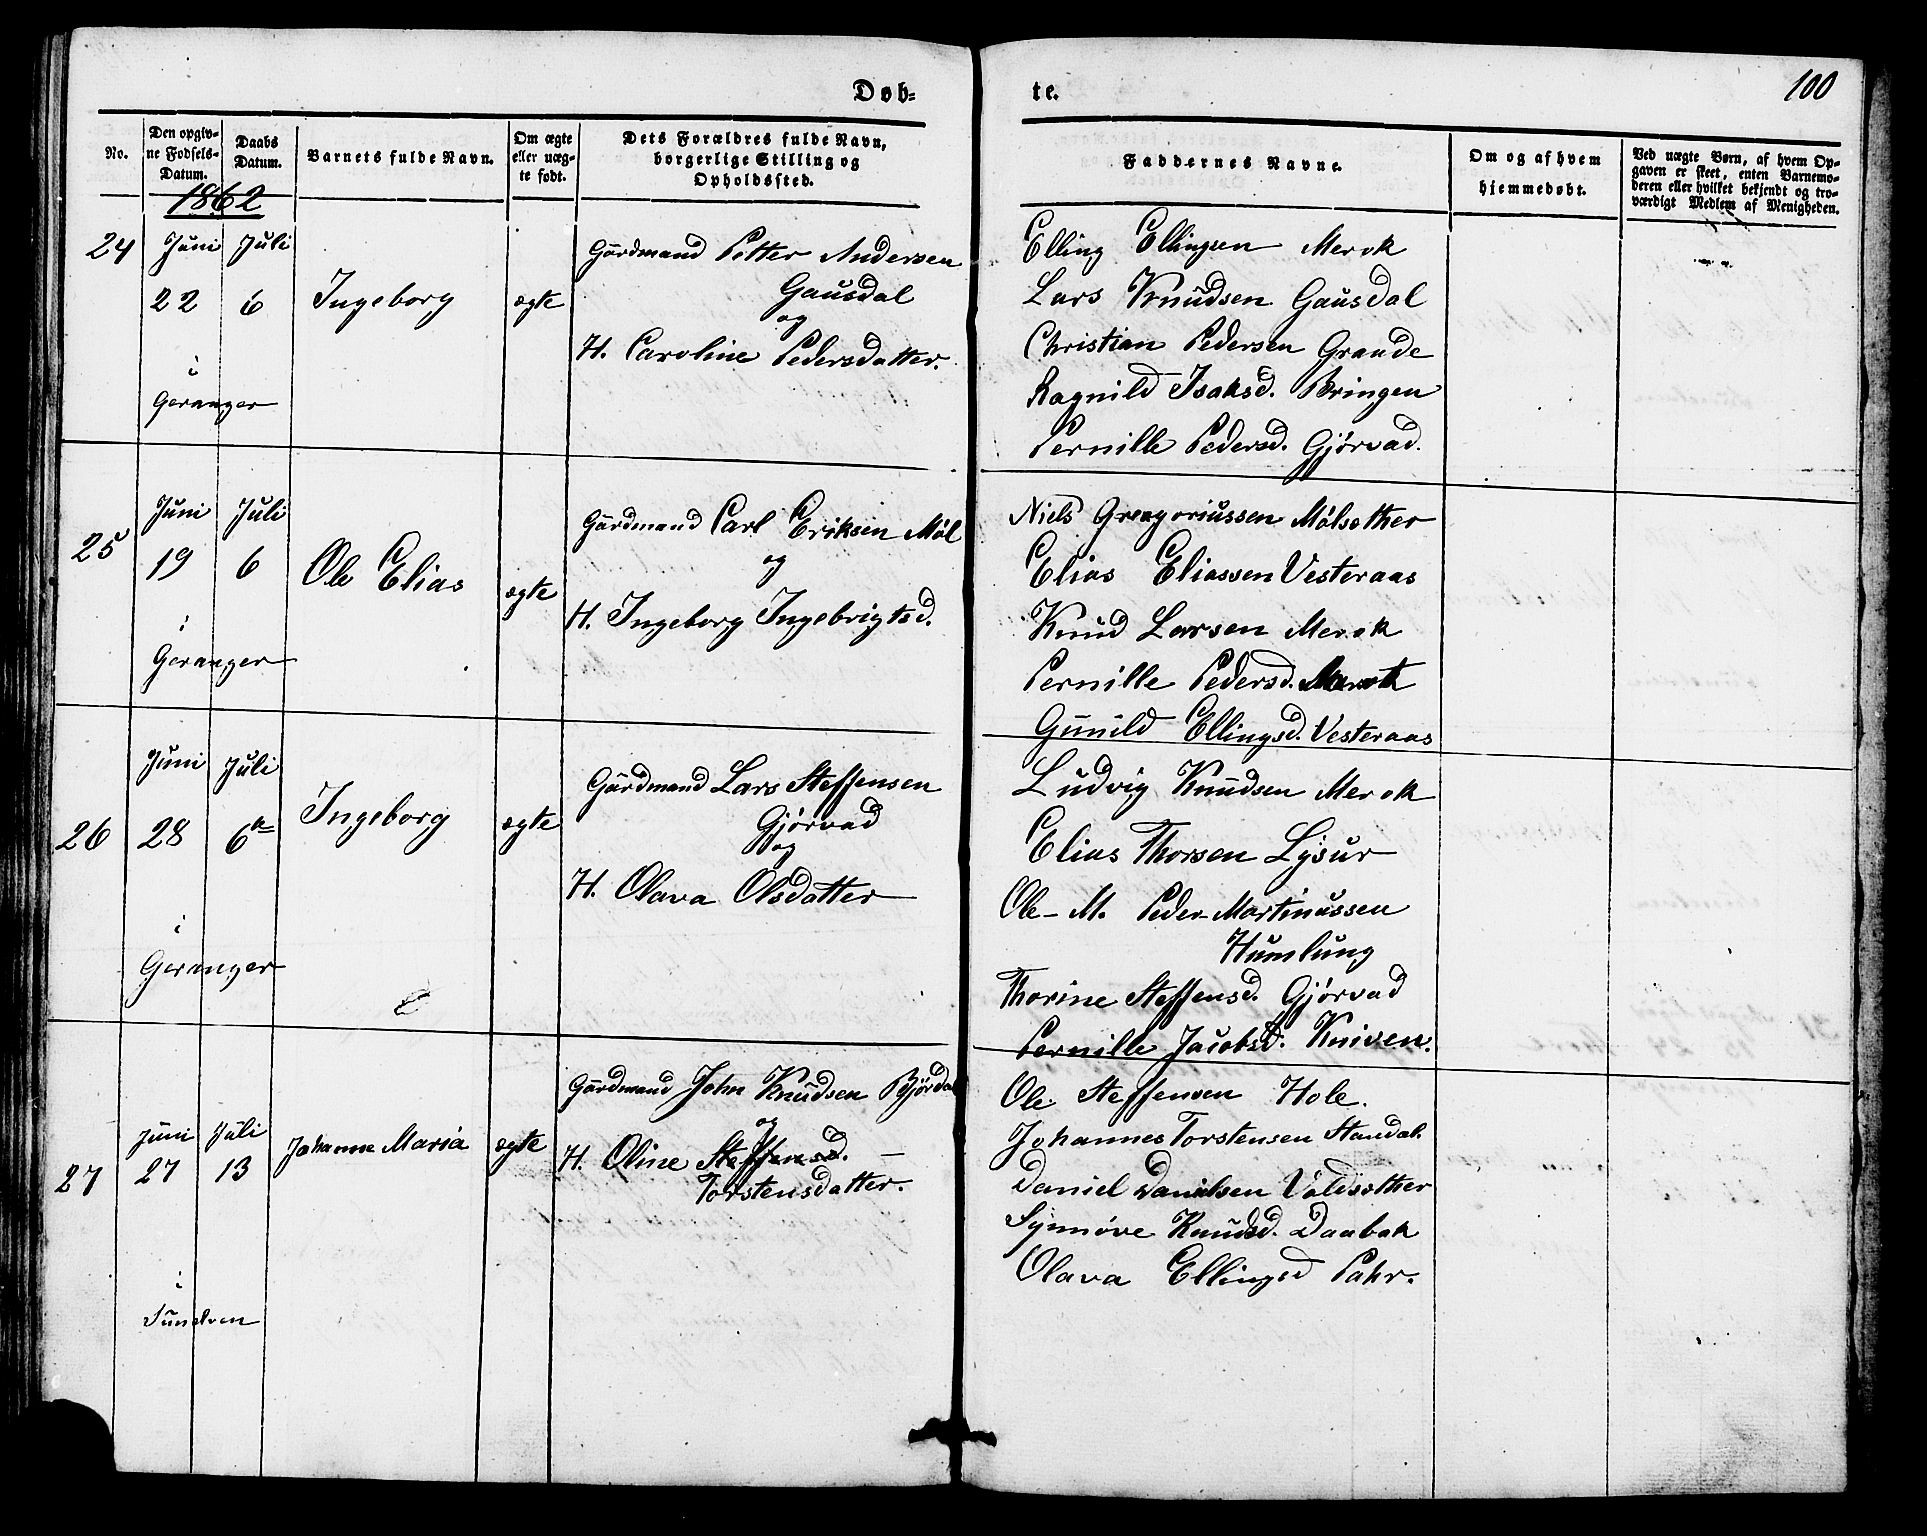 Døb-
te.
100
No.
Den opgiv-
ne Fødsels-
Datum.
Daabs
Datum.
Barnets fulde Navn.
Om ægte
eller uæg-
te født.
Dets Forældres fulde Navn,
borgerlige Stilling og
Opholdssted.
Faddernes Navne.
Om og af hvem
hjemmedøbt.
Ved uægte Børn, af hvem Op-
gaven er skeet, enten Barnemo-
deren eller hvilket bekjendt og tro-
værdigt Medlem af Menigheden.
1862
24
Juni
22
i
Geranger
Juli
6
Ingeborg
ægte
Gårdmand Petter Andersen
Gausdal
og
H. Caroline Pedersdatter.
Elling Ellingsen Merok
Lars Knudsen Gausdal
Christian Pedersen Grande
Ragnild Isaksd. Bringen
Pernille Pedersd. Gjørvad.
25
Juni
19
i
Geranger
Juli
6
Ole Elias
ægte
Gårdmand Carl Eriksen Møl
og
H. Ingeborg Ingebrigtsd.
Niels Gregoriussen Mølsether
Elias Eliassen Vesteraas
Knud Larsen Merok
Pernille Pedersd. Merok
Gunild Ellingsd. Vesteraas
26
Juni
28
i
Geranger
Juli
6te
Ingeborg
ægte
Gårdmand Lars Steffensen
Gjørvad
og
H. Olava Olsdatter
Ludvig Knudsen Merok
Elias Thorsen Lysur
Ole - M. Peder Martinussen
Humlung
Thorine Steffensd. Gjørvad
Pernille Jacobsd. Kniven.
27
Juni
27
i
Sunelven
Juli
13
Johanne Maria
ægte
Gårdmand John Knudsen Bjørdal
og
H. Oline Steffensd. —
Torstensdatter.
Ole Steffensen Hole.
Johannes Torstensen Standal.
Daniel Danielsen Voldsether
Synnøve Knudsd. Daabak
Olava Ellingsd Pahr.